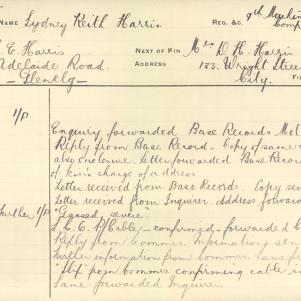 NAME Sydney Keith Harris REG. &C. 9th Machin
Comp
E. Harris NEXT OF KIN Mrs D. H. Harris
Adelaide Road. ADDRESS 133. Wright Stree
Glenelg City.
1/P Enquiry forwarded Base Records Mel
Reply from Base Records. Copy of same
also enclosure. Letter forwarded Base Record
of kin's change of address
Letter received from Base Records. Copy sen
further 1/P Letter received from Inquirer. Address forwar
"Gassed severe"
Cable confirmed forwarded
Reply from Commrs. Information sen
Further information from Commrs. same f
"Slip from Commrs confirming cable in
Same forwarded Inquirer.